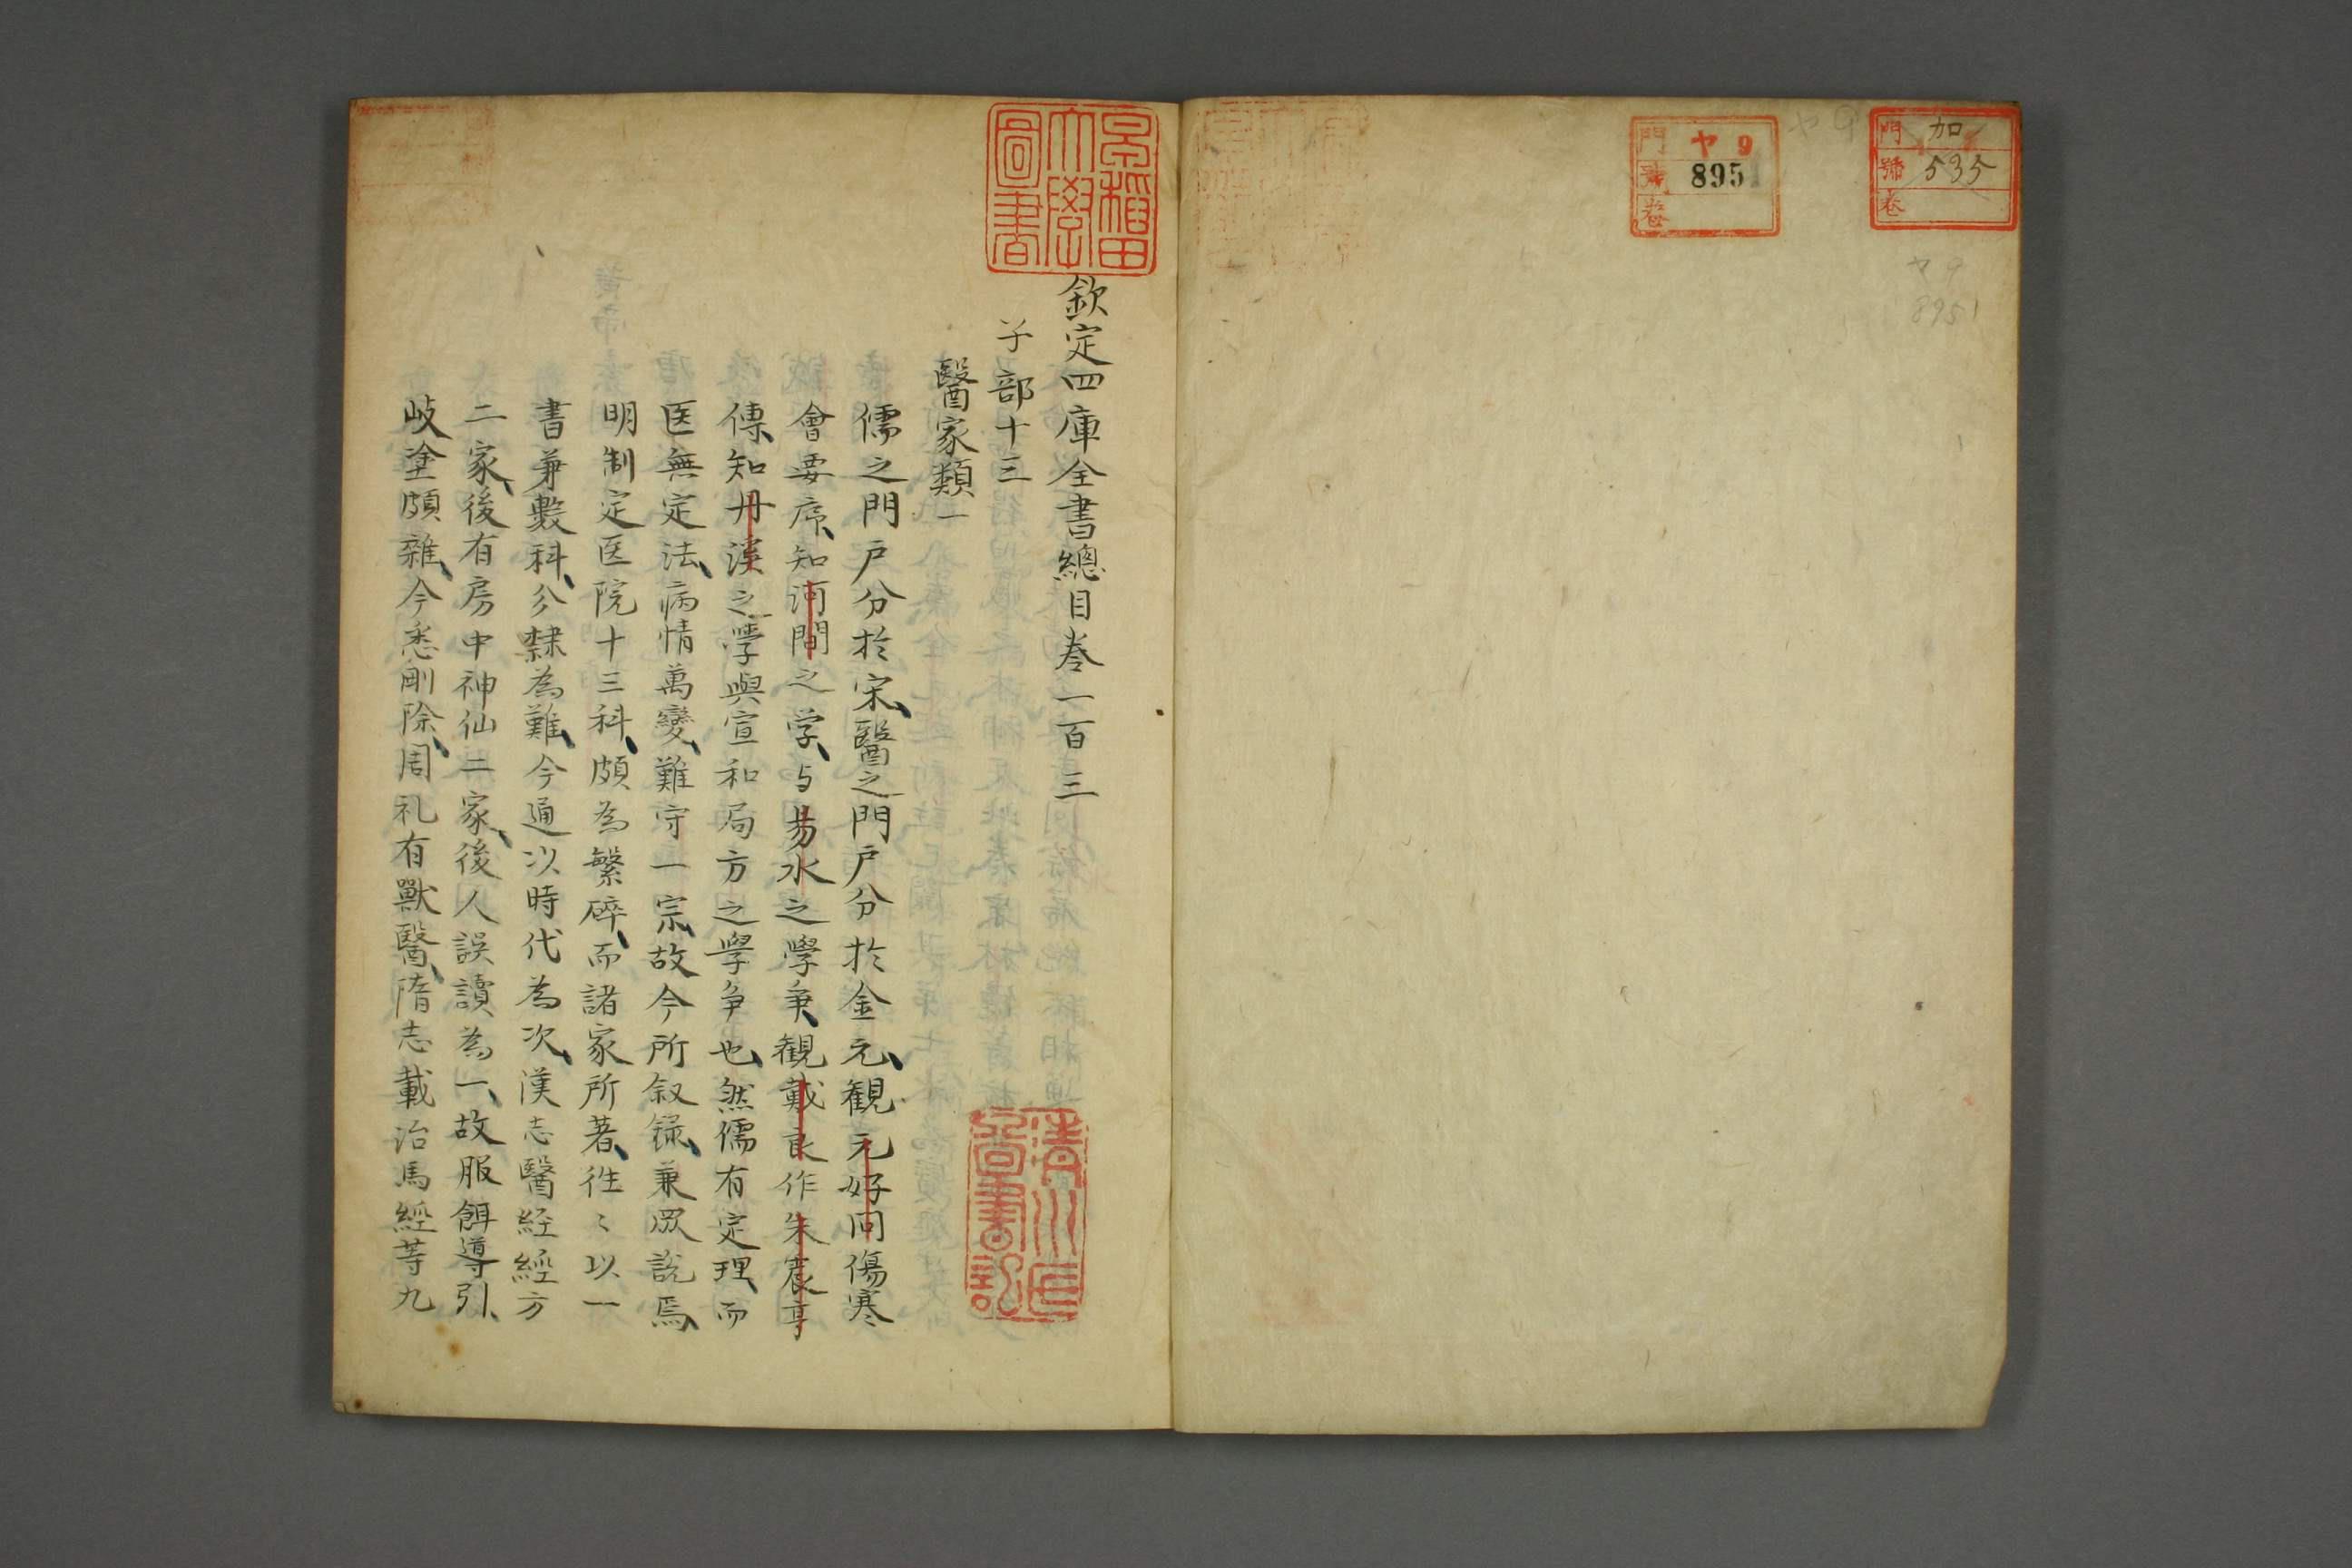 門 加
號 535
卷
門 ヤ9
號 895
卷
ヤ9
8951
早稲田
大學
圖書
欽定四庫全書總目巻一百三
子部十三
醫家類一
儒之門戸分於宋、醫之門戸分於金元、観元好問傷寒
會要序、知河間之学、与易水之學爭、観戴良作朱震亨
傳、知丹溪之學與宣和局方之學争也、然儒有定理、而
医無定法、病情萬變、難守一宗、故今所叙録、兼眾說焉、
明制定医院十三科、頗為繁碎、而諸家所著、徃〻以一
書兼數科、分隸為難、今通以時代為次、漢志醫経經方
二家、後有房中神仙二家、後人誤讀為一、故服餌導引、
岐塗頗雜、今悉刪除、周礼有獸醫、隋志載治馬經等九
清川氏